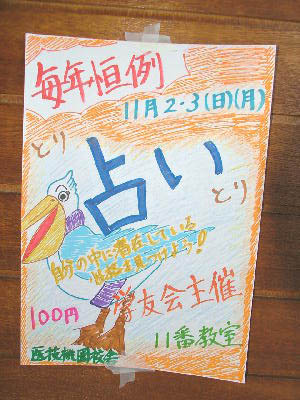 毎年恒例
11月2・3(日)(月)
とり
占い
とり
自分の中に潜在している
性格を見つけよう!
100円
学友会主催
11番教室